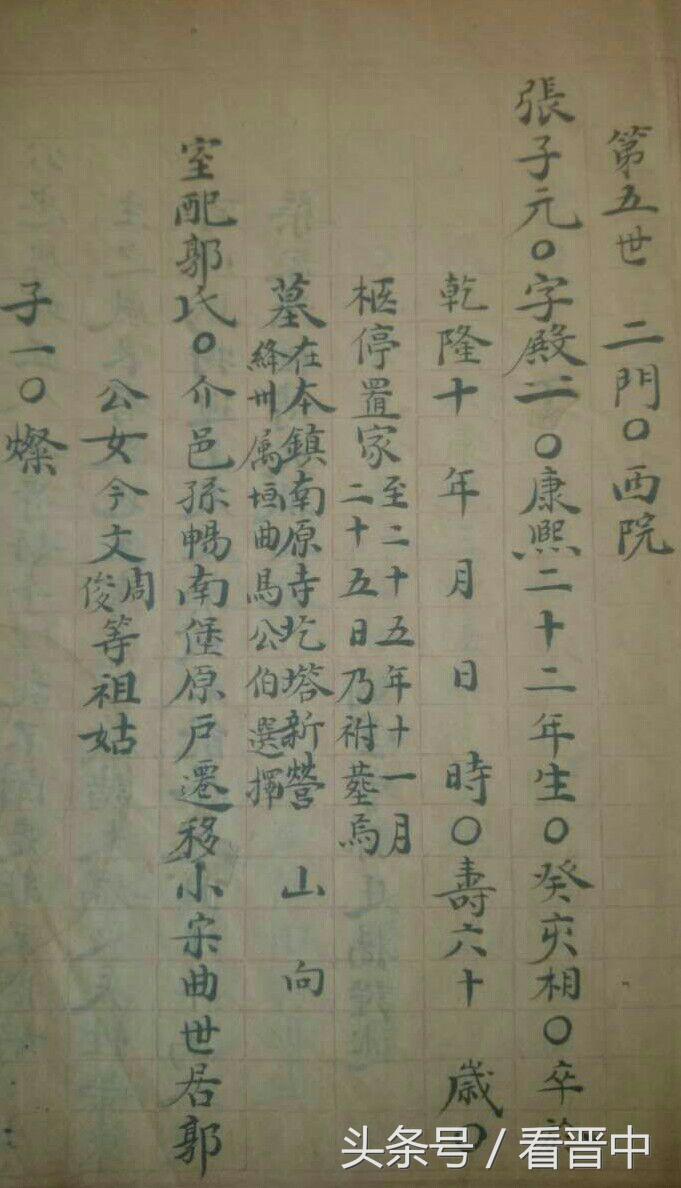 第五世 二門〇西院
張子元〇字殿一〇康熙二十二年生〇癸亥相〇卒於
乾隆十 年 月 日 時〇壽六十 歲〇
柩停置家至二十五年十一月
二十五日乃祔塟焉
墓在本鎮南原寺圪塔新營 山 向
絳州属垣曲馬公伯選擇
室配郭氏〇介邑孫暢南堡原戶遷移小宋曲世居郭
公女今文周
俊等祖姑
子一〇燦
头条号 / 看晋中